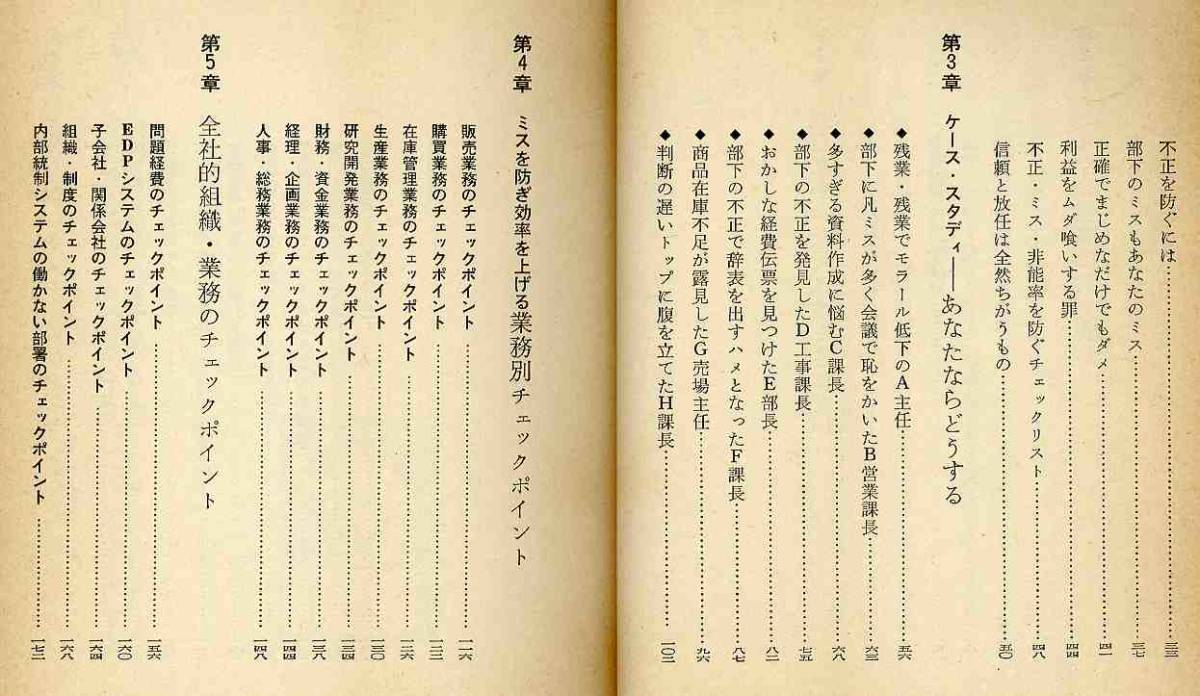 不正を防ぐには……………………三三
部下のミスもあなたのミス……………………三七
正確でまじめなだけでもダメ……………………四一
利益をムダ喰いする罪……………………四四
不正・ミス・非能率を防ぐチェックリスト……………………四八
信頼と放任は全然ちがうもの……………………五〇
第3章 ケース・スタディ――あなたならどうする
◆残業・残業でモラール低下のA主任……………………五六
◆部下に凡ミスが多く会議で恥をかいたB営業課長……………………六三
◆多すぎる資料作成に悩むC課長……………………六八
◆部下の不正を発見したD工事課長……………………七五
◆おかしな経費伝票を見つけたE部長……………………八二
◆部下の不正で辞表を出すハメとなったF課長……………………八七
◆商品在庫不足が露見したG売場主任……………………九六
◆判断の遅いトップに腹を立てたH課長……………………一〇二
第4章 ミスを防ぎ効率を上げる業務別チェックポイント
販売業務のチェックポイント……………………一一六
購買業務のチェックポイント……………………一二三
在庫管理業務のチェックポイント……………………一二六
生産業務のチェックポイント……………………一三〇
研究開発業務のチェックポイント……………………一三四
財務・資金業務のチェックポイント……………………一三八
経理・企画業務のチェックポイント……………………一四四
人事・総務業務のチェックポイント……………………一四八
第5章 全社的組織・業務のチェックポイント
問題経費のチェックポイント……………………一五六
EDPシステムのチェックポイント……………………一六〇
子会社・関係会社のチェックポイント……………………一六四
組織・制度のチェックポイント……………………一六八
内部統制システムの働かない部署のチェックポイント……………………一七二